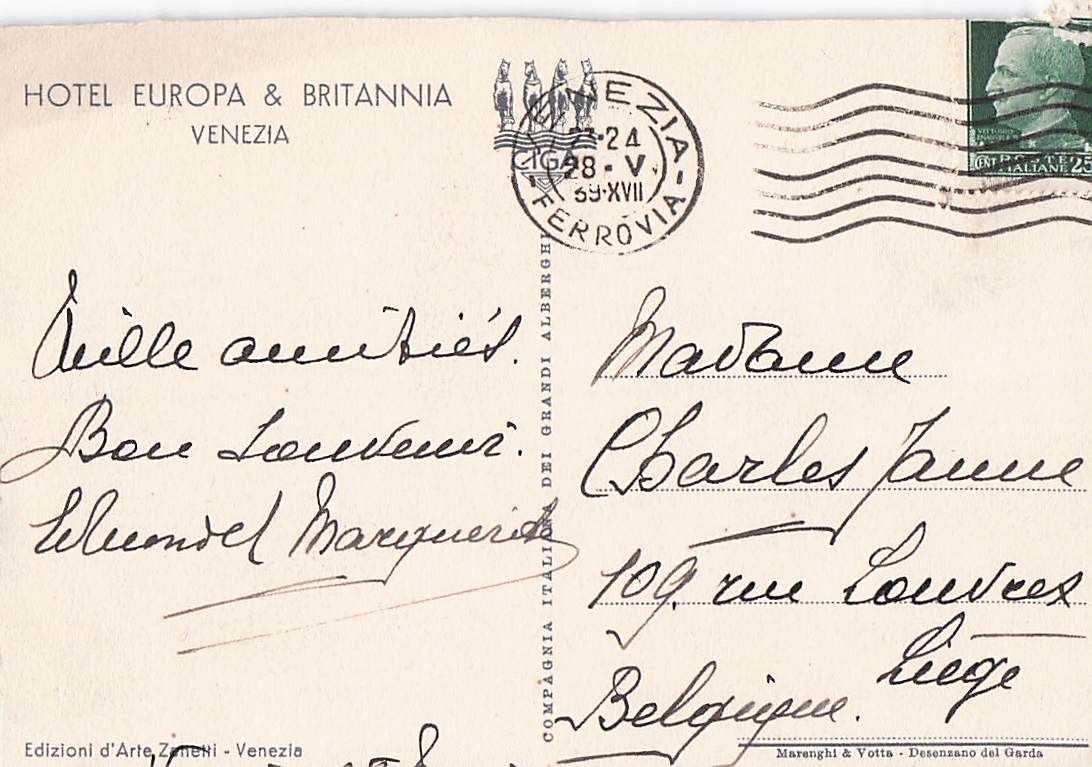 HOTEL EUROPA & BRITANNIA
VENEZIA
CIGA
VENEZIA
23·24
28 - V
39·XVII
FERROVIA
POSTE
ITALIANE
CENT 25
Mille amitiés.
Bon souvenir.
Marguerite
COMPAGNIA ITALIANA DEI GRANDI ALBERGHI
Madame
Charles Janne
109, rue Louvrex
Liège
Belgique.
Edizioni d'Arte Zanetti - Venezia
Marenghi & Votta - Desenzano del Garda